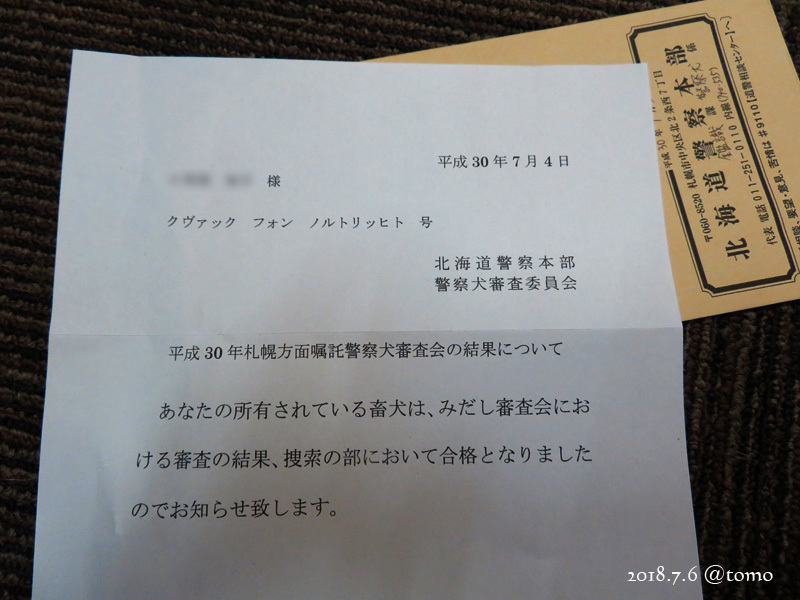 平成30年7月4日
様
クヴァック フォン ノルトリッヒト 号
北海道警察本部
警察犬審査委員会
平成30年札幌方面嘱託警察犬審査会の結果について
あなたの所有されている畜犬は、みだし審査会にお
ける審査の結果、捜索の部において合格となりました
のでお知らせ致します。
平成30年
〒060-8520 札幌市中央区北2条西7丁目
北海道警察本部
鑑識課 警察犬係
代表 電話 011-251-0110 内線
相談、要望・意見、苦情は #9110【道警相談センター】へ
2018.7.6 @tomo